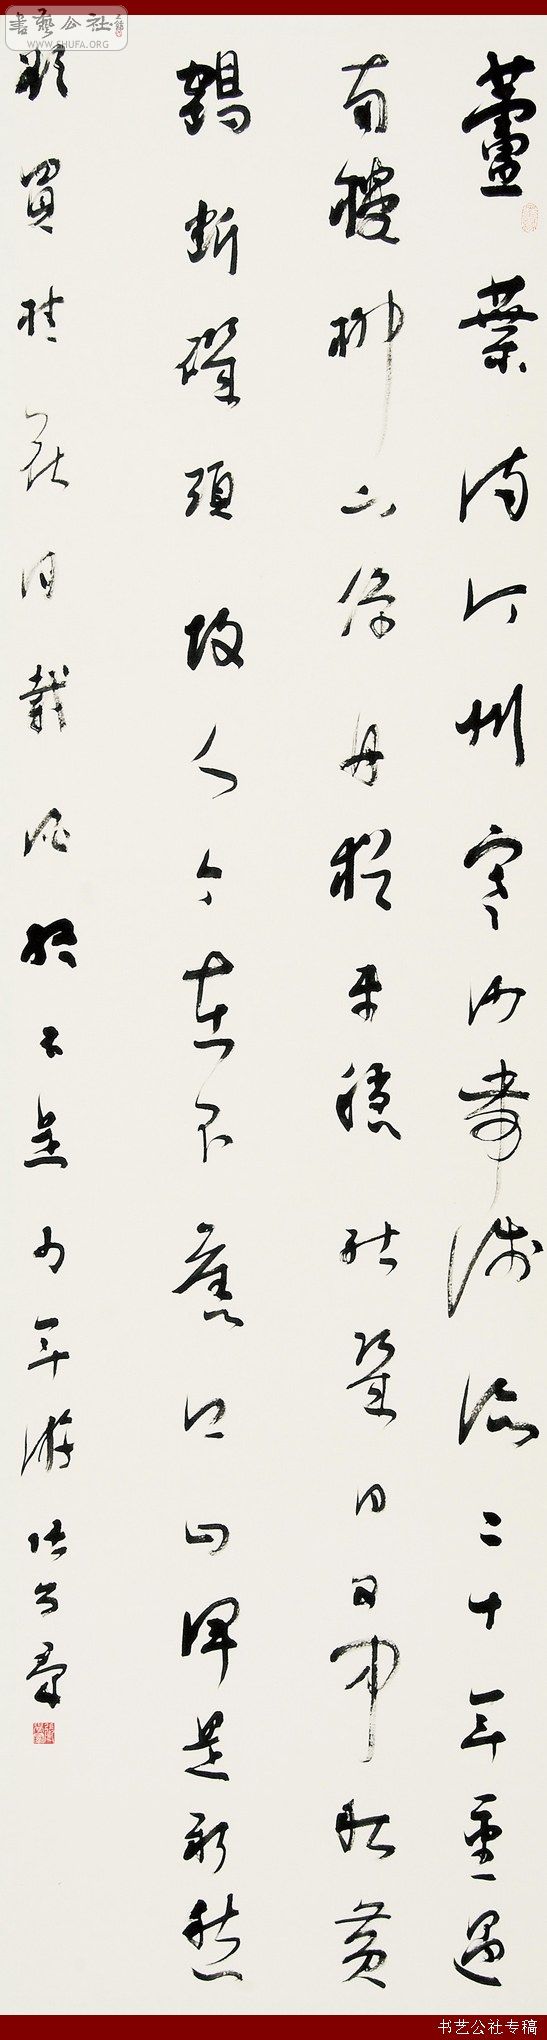 書藝公社
WWW.SHUFA.ORG
蘆葉满汀州寒沙帶淺流二十年重過
南樓柳下係舟猶未穩能幾日又中秋黄
鶴断磯頭故人今在否舊江山渾是新愁
欲買桂花同載酒終不是少年游
书艺公社专稿